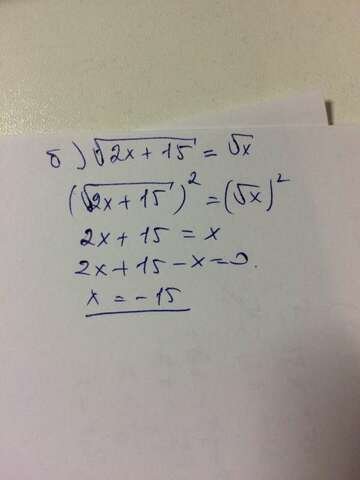 б) √2x + 15 = √x
(√2x + 15)² = (√x)²
2x + 15 = x
2x + 15 - x = 0.
x = -15